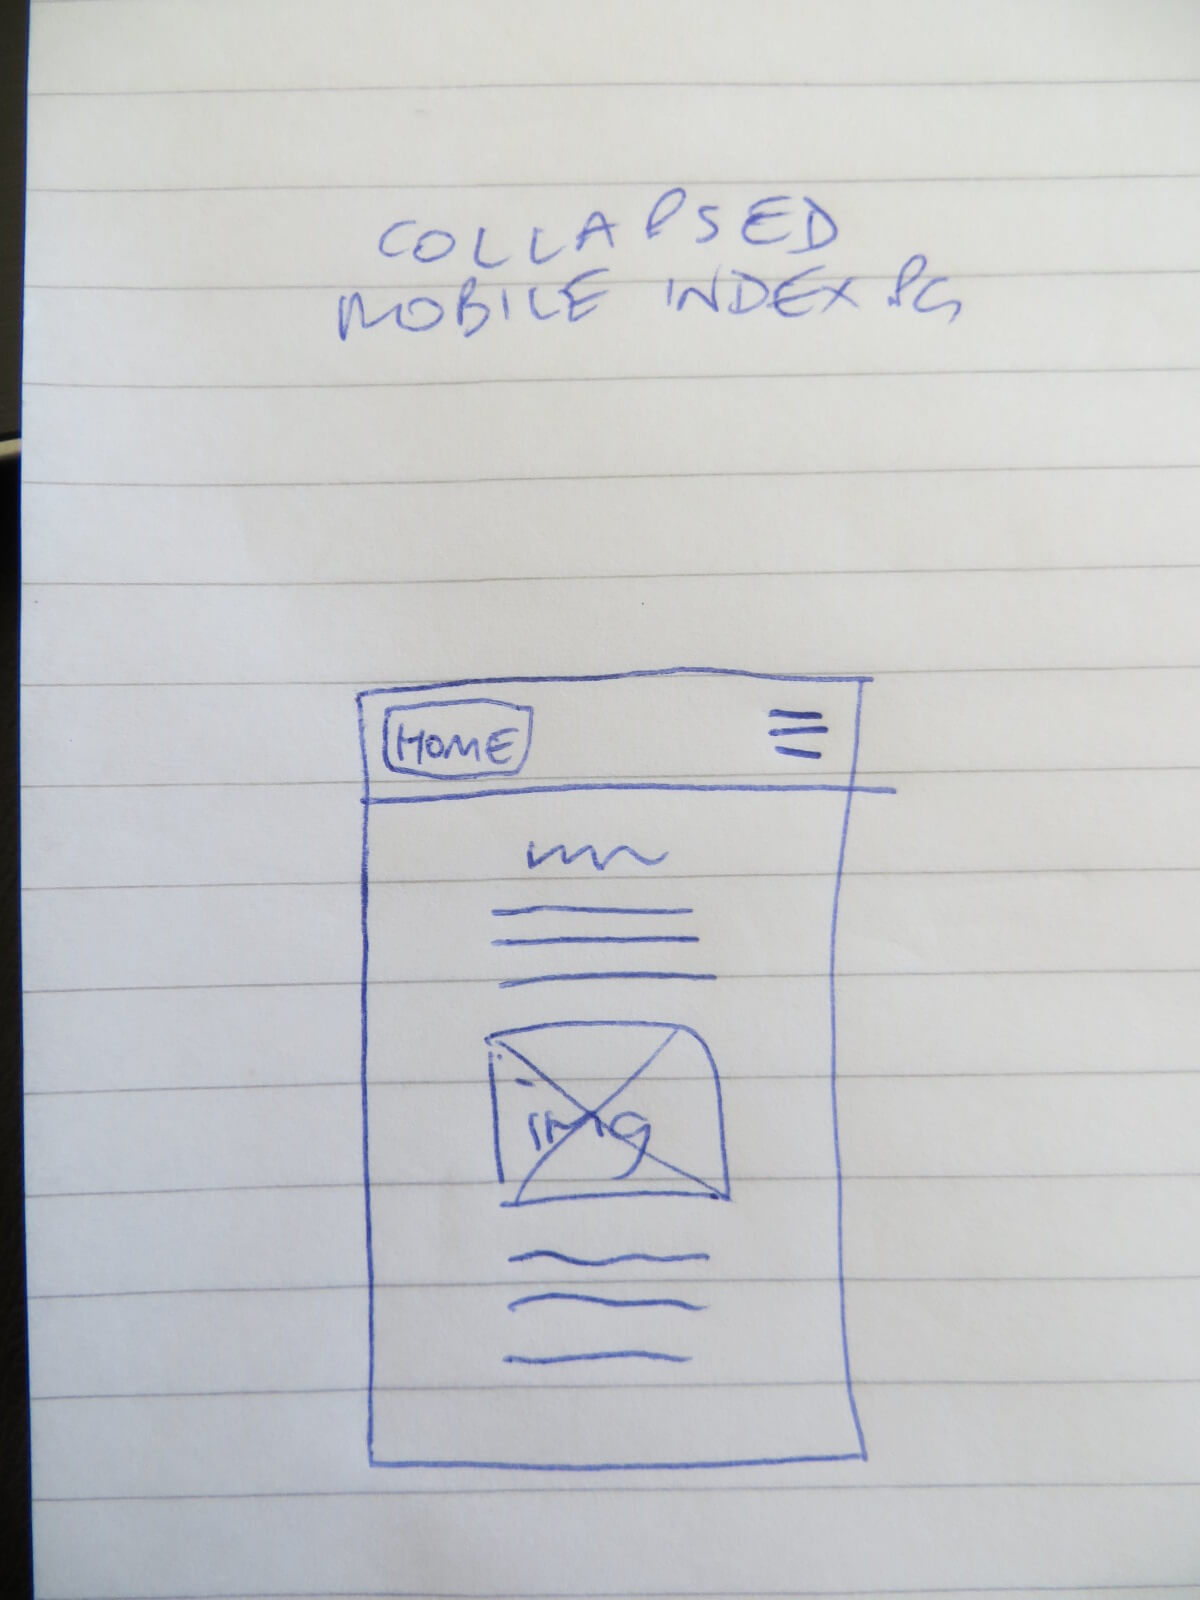 COLLAPSED
MOBILE INDEX PG
HOME
img